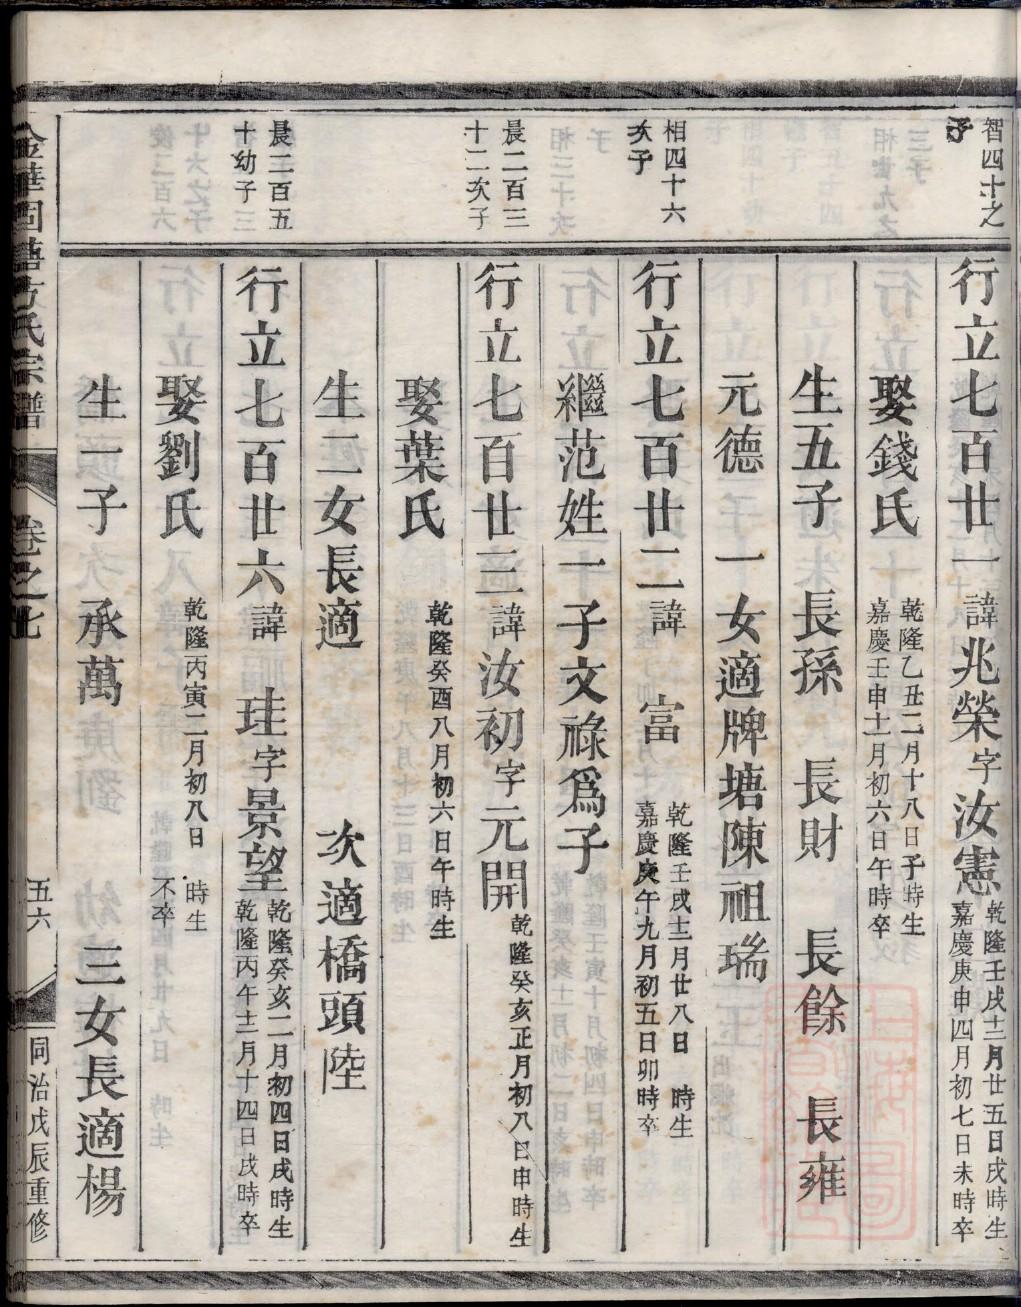 智四十之子
行立七百廿一諱兆榮字汝憲乾隆壬戌十二月廿五日戌時生嘉慶庚申四月初七日未時卒
娶錢氏乾隆乙丑二月十八日子時生嘉慶壬申十一月初六日午時卒
生五子 長孫 長財 長餘 長雍
元德 一女適牌塘陳祖瑞
相四十六次子
行立七百廿二諱 富 乾隆壬戌十二月廿八日 時生嘉慶庚午九月初五日卯時卒
繼范姓一子文祿爲子
晨二百三十二次子
行立七百廿三諱汝初字元開乾隆癸亥正月初八日申時生
娶葉氏 乾隆癸酉八月初六日午時生
生二女長適 次適橋頭陸
晨二百五十幼子
行立七百廿六諱 珪字景望乾隆癸亥二月初四日戌時生乾隆丙午十二月十四日戌時卒
娶劉氏 乾隆丙寅二月初八日 時生不卒
生一子 承萬 三女長適楊
金華固塘方氏宗譜 卷之七 五六 同治戊辰重修